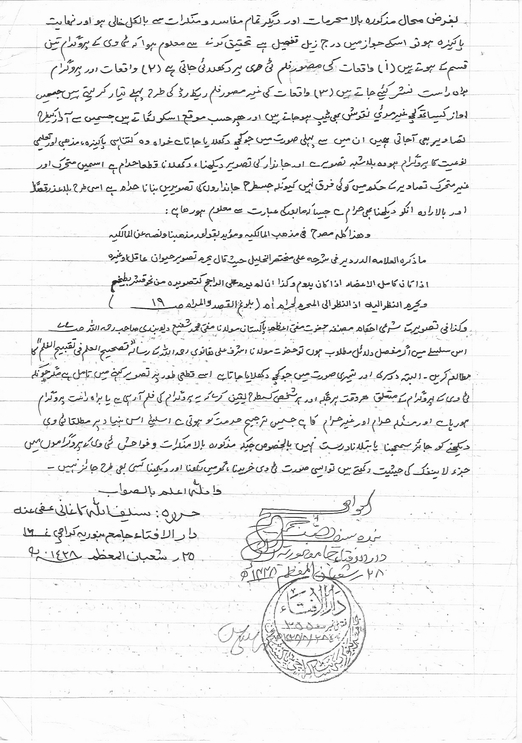 بفرض محال مذکورہ بالا محرمات اور دیگر تمام مفاسد و منکرات سے بالکل خالی ہو اور نہایت
پاکیزہ ہو تو اسکے جواز میں درج ذیل تفصیل ہے تحقیق کرنے سے معلوم ہوا کہ ٹی وی کے پروگرام تین
قسم کے ہوتے ہیں (۱) واقعات کی مصور فلم ٹی وی پر دکھلائی جاتی ہے (۲) واقعات اور پروگرام
براہ راست نشر کئے جاتے ہیں (۳) واقعات کی غیر مصور فلم ریکارڈ کی طرح پہلے تیار کر لیتے ہیں جسمیں
آواز کیساتھ کچھ غیر مرئی نقوش بھی ٹیپ ہو جاتے ہیں اور پھر حسب موقع اسکو لگاتے ہیں جسمیں سے آواز کی طرح
تصاویر بھی آجاتی ہیں ان میں سے پہلی صورت میں جو کچھ دکھلایا جاتا ہے خواہ وہ کتنا ہی پاکیزہ، مذہبی اور تعلیمی
نوعیت کا پروگرام ہو وہ بلاشبہ تصویر ہے اور جاندار کی تصویر دیکھنا، دکھلانا قطعا حرام ہے اسمیں متحرک اور
غیر متحرک تصاویر کے حکم میں کوئی فرق نہیں کیونکہ جسطرح جانداروں کی تصویریں بنانا حرام ہے اسی طرح بلاعذر قصداً
اور بالارادہ انکو دیکھنا بھی حرام ہے جیسا کہ مالکیہ کی عبارت سے معلوم ہو رہا ہے:
وهذا كله مصرح في مذهب المالكية ومؤيد بقواعد مذهبنا ونصه عن المالكية
ما ذكره العلامة الدردير في شرحه على مختصر الخليل حيث قال يحرم تصوير حيوان عاقل او غيره
اذا كان كامل الاعضاء اذا كان يدوم وكذا ان لم يدم على الراجح كتصويره من نحو قشر بطيخ
ويحرم النظر اليه اذ النظر الى المحرم لحرام اه (بلوغ القصد والمرام ص ۱۹)
وکذا فی تصویر کے شرعی احکام مصنفہ حضرت مفتی اعظم پاکستان مولانا مفتی محمد شفیع دیوبندی صاحب رحمہ اللہ ص
اس سلسلے میں اگر مفصل دلائل مطلوب ہوں تو حضرت مولانا اشرف علی تھانوی رحمہ اللہ کا رسالہ "تصحیح العلم فی تقبیح الفلم" کا
مطالعہ کریں ۔ البتہ دوسری اور تیسری صورت میں جو کچھ دکھلایا جاتا ہے اسے قطعی طور پر تصویر کہنے میں تامل ہے مگر چونکہ
ٹی وی کے پروگرام کے متعلق ہر وقت ہر جگہ اور ہر شخص کیسطرح یقین کرے کہ یہ پروگرام کی فلم آرہی ہے یا براہ راست پروگرام
ہو رہا ہے اور مسئلہ حرام اور غیر حرام کا ہے جسمیں ترجیح حرمت کو ہوتی ہے اسلیے اس بنیاد پر مطلقا ٹی وی
دیکھنے کو جائز سمجھنا یا بتلانا درست نہیں بالخصوص جبکہ مذکورہ بالا منکرات و فواحش ٹی وی کے پروگراموں میں
جزء لاینفک کی حیثیت رکھتے ہیں تو اسی صورت ٹی وی خریدنا، گھر میں رکھنا اور دیکھنا کسی بھی طرح جائز نہیں ۔
واللہ اعلم بالصواب
حررہ : سیف اللہ عفی عنہ
دار الافتاء جامعہ بنوریہ کراچی ۱۶
۲۵ شعبان المعظم ۱۴۲۸ھ
دار الافتاء جامعہ بنوریہ
۲۸ شعبان المعظم ۱۴۲۸ھ
دار الافتاء